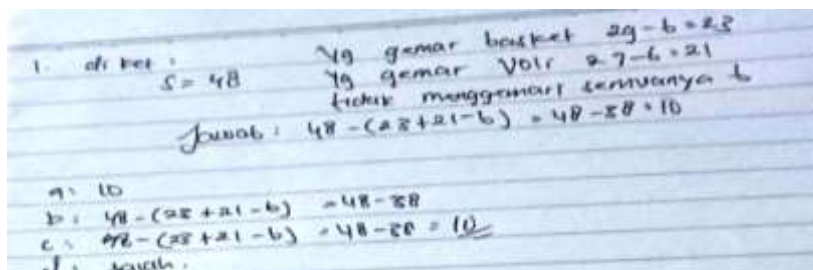 1. diket : Yg gemar basket 29-6=23
S = 48 Yg gemar Voli 27-6=21
tidak menggemari semuanya 6
Jawab : 48-(23+21-6) = 48-38=10
a: 10
b: 48-(23+21-6) =48-38
c: 48-(23+21-6) =48-38=10